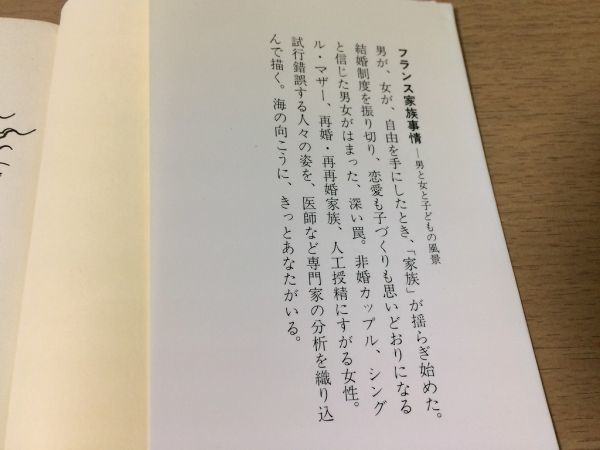 フランス家族事情―男と女と子どもの風景
男が、女が、自由を手にしたとき、「家族」が揺らぎ始めた。
結婚制度を振り切り、恋愛も子づくりも思いどおりになる
と信じた男女がはまった、深い罠。非婚カップル、シング
ル・マザー、再婚・再再婚家族、人工授精にすがる女性。
試行錯誤する人々の姿を、医師など専門家の分析を織り込
んで描く。海の向こうに、きっとあなたがいる。